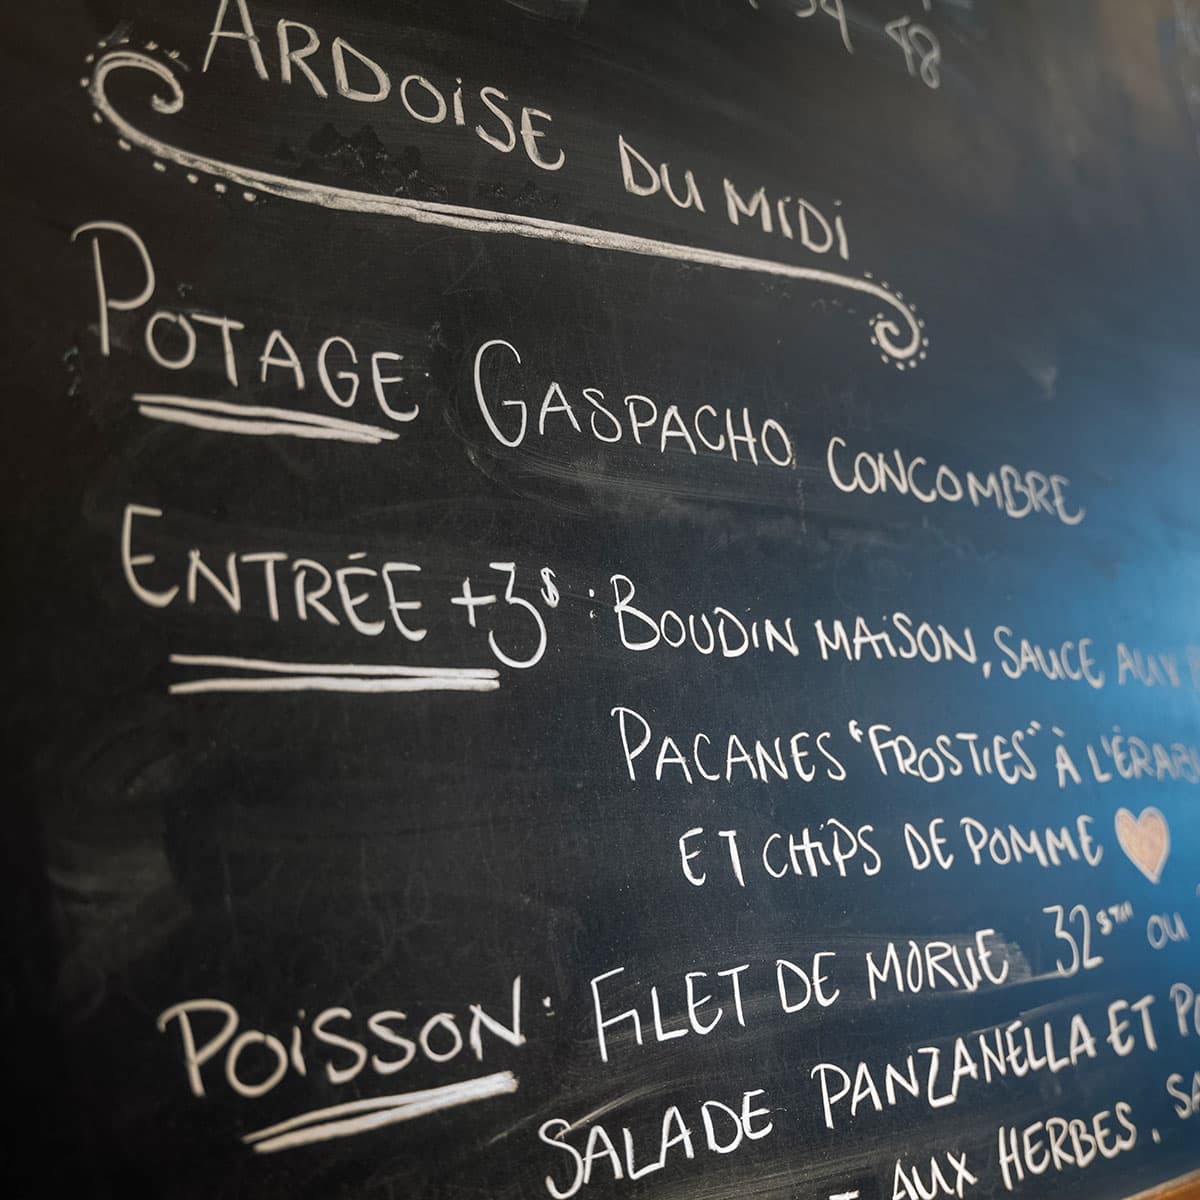 48
ARDOISE DU MIDI
POTAGE GASPACHO CONCOMBRE
ENTRÉE +3$ : BOUDIN MAISON, SAUCE AUX
PACANES "FROSTIES" À L'ÉRAB
ET CHIPS DE POMME
POISSON: FILET DE MORUE 32 OU
SALADE PANZANELLA ET
AUX HERBES. SA